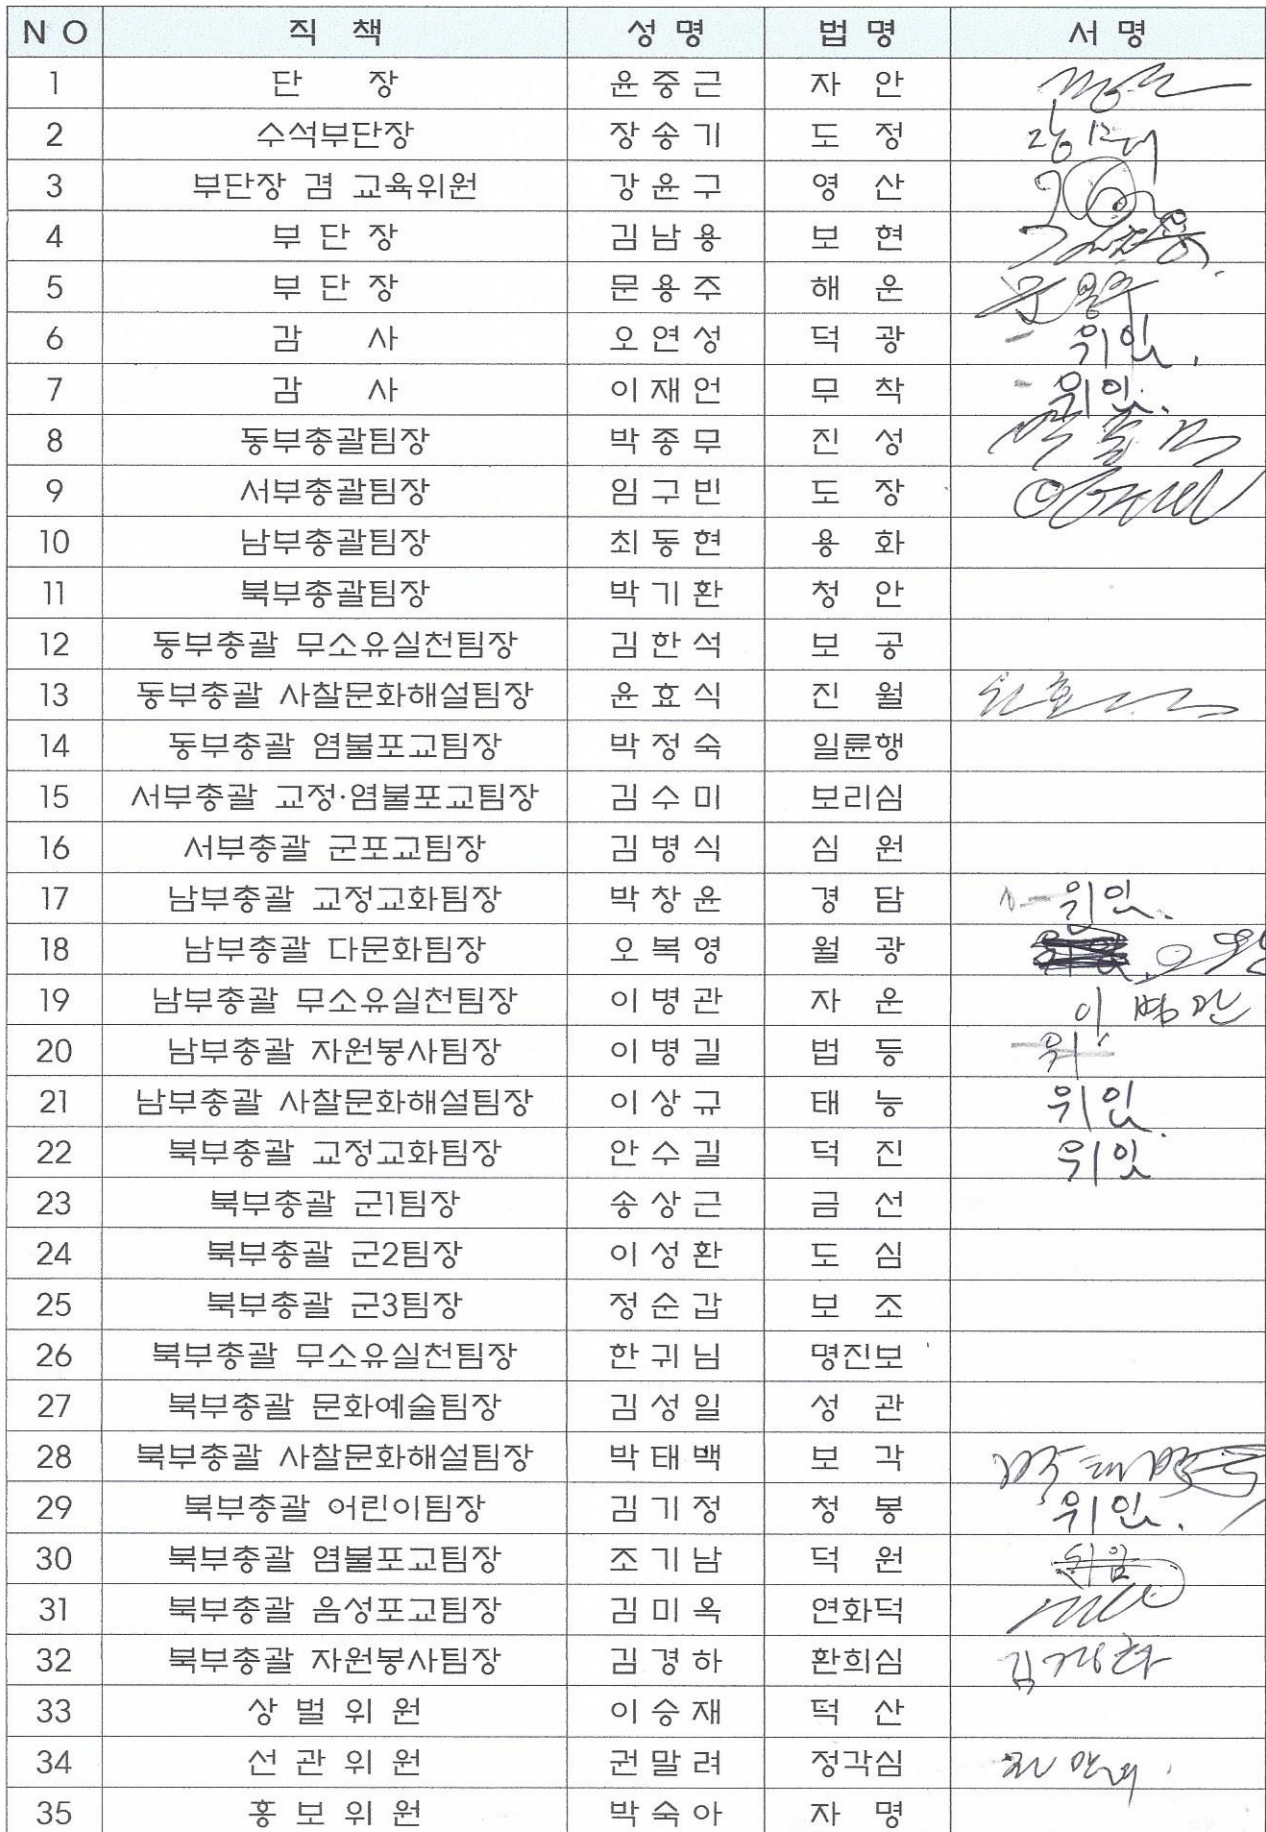 N O 직 책 성 명 법 명 서 명
1 단 장 윤 중 근 자 안
2 수석부단장 장 송 기 도 정
3 부단장 겸 교육위원 강 윤 구 영 산
4 부 단 장 김 남 용 보 현
5 부 단 장 문 용 주 해 운 문용주
6 감 사 오 연 성 덕 광 위임.
7 감 사 이 재 언 무 착 위임.
8 동부총괄팀장 박 종 무 진 성
9 서부총괄팀장 임 구 빈 도 장
10 남부총괄팀장 최 동 현 용 화
11 북부총괄팀장 박 기 환 청 안
12 동부총괄 무소유실천팀장 김 한 석 보 공
13 동부총괄 사찰문화해설팀장 윤 효 식 진 월
14 동부총괄 염불포교팀장 박 정 숙 일륜행
15 서부총괄 교정·염불포교팀장 김 수 미 보리심
16 서부총괄 군포교팀장 김 병 식 심 원
17 남부총괄 교정교화팀장 박 창 윤 경 담 위임.
18 남부총괄 다문화팀장 오 복 영 월 광
19 남부총괄 무소유실천팀장 이 병 관 자 운 이 병관
20 남부총괄 자원봉사팀장 이 병 길 법 등 위
21 남부총괄 사찰문화해설팀장 이 상 규 태 능 위임.
22 북부총괄 교정교화팀장 안 수 길 덕 진 위임
23 북부총괄 군1팀장 송 상 근 금 선
24 북부총괄 군2팀장 이 성 환 도 심
25 북부총괄 군3팀장 정 순 갑 보 조
26 북부총괄 무소유실천팀장 한 귀 님 명진보
27 북부총괄 문화예술팀장 김 성 일 성 관
28 북부총괄 사찰문화해설팀장 박 태 백 보 각
29 북부총괄 어린이팀장 김 기 정 청 봉 위임.
30 북부총괄 염불포교팀장 조 기 남 덕 원 위임
31 북부총괄 음성포교팀장 김 미 옥 연화덕
32 북부총괄 자원봉사팀장 김 경 하 환희심 김경하
33 상 벌 위 원 이 승 재 덕 산
34 선 관 위 원 권 말 려 정각심
35 홍 보 위 원 박 숙 아 자 명